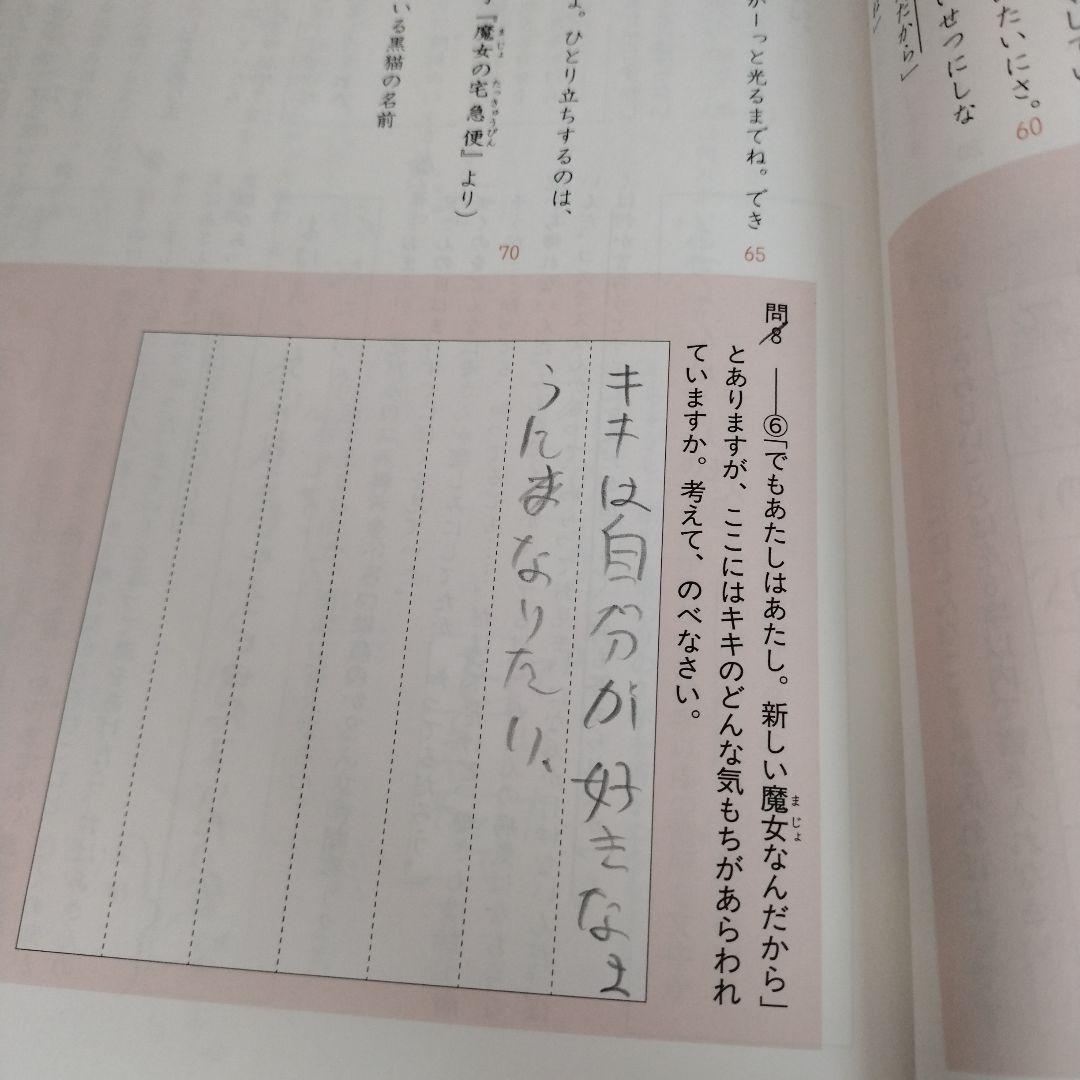 してい
たいにさ。
いせつにしな
だから」
60
かーっと光るまでね。でき
65
よ。ひとり立ちするのは、
『魔女の宅急便』より）
まじょ
たっきゅうびん
70
いる黒猫の名前
問8
⑥「でもあたしはあたし。新しい魔女なんだから」
まじょ
とありますが、ここにはキキのどんな気もちがあらわれ
ていますか。考えて、のべなさい。
キキは自分が好きなよ
うにまなりたい、